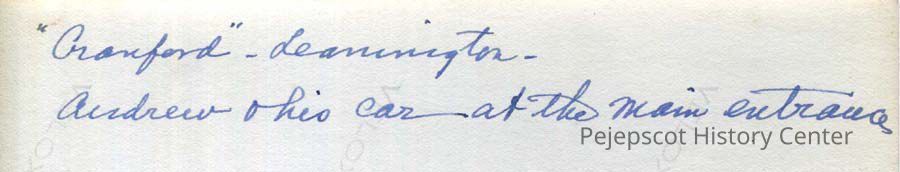 "Cranford" - Leamington -
Andrew & his car - at the main entrance
Pejepscot History Center